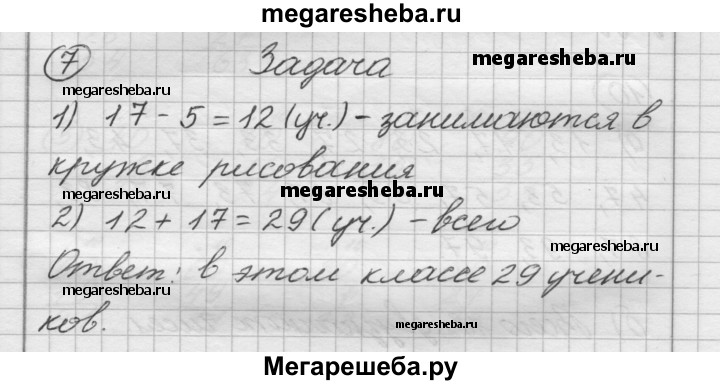 megaresheba.ru
7 Задача
megaresheba.ru
megaresheba.ru
1) 17 - 5 = 12 (уч.) - занимаются в
кружке рисования
megaresheba.ru
megaresheba.ru
2) 12 + 17 = 29 (уч.) - всего
megaresheba.ru
Ответ: в этом классе 29 учени-
megaresheba.ru
ков.
megaresheba.ru
Мегарешеба.ру